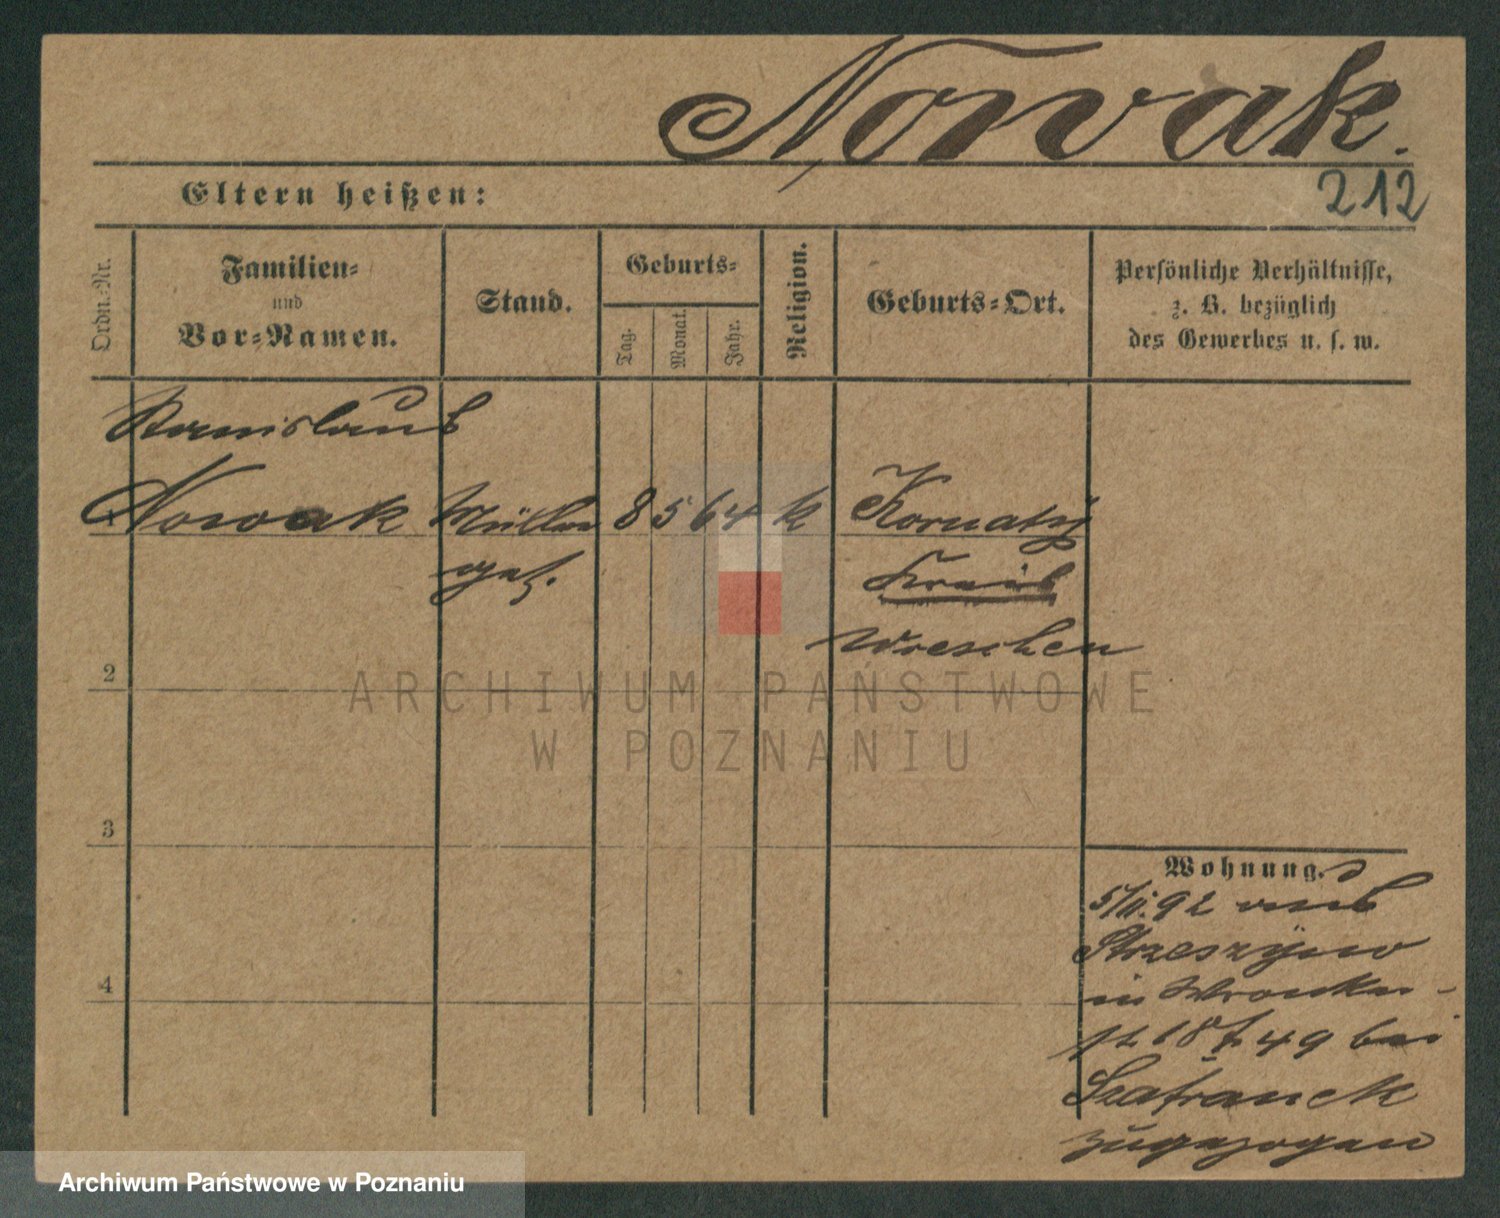 Nowak.
212
Eltern heißen:
Ordn.-Nr.
Familien-
und
Vor-Namen.
Stand.
Geburts-
Tag.
Monat.
Jahr.
Religion.
Geburts-Ort.
Persönliche Verhältnisse,
z. B. bezüglich
des Gewerbes u. s. w.
Stanislaus
1 Nowak Müller 8 5 64 k Kornaty
Kreis
Wreschen
2
3
4
Wohnung.
5/11. 92 aus
Strzeszyno
in Wronker-
49 bei
Szafranek
zugezogen
ARCHIWUM PAŃSTWOWE
W POZNANIU
Archiwum Państwowe w Poznaniu